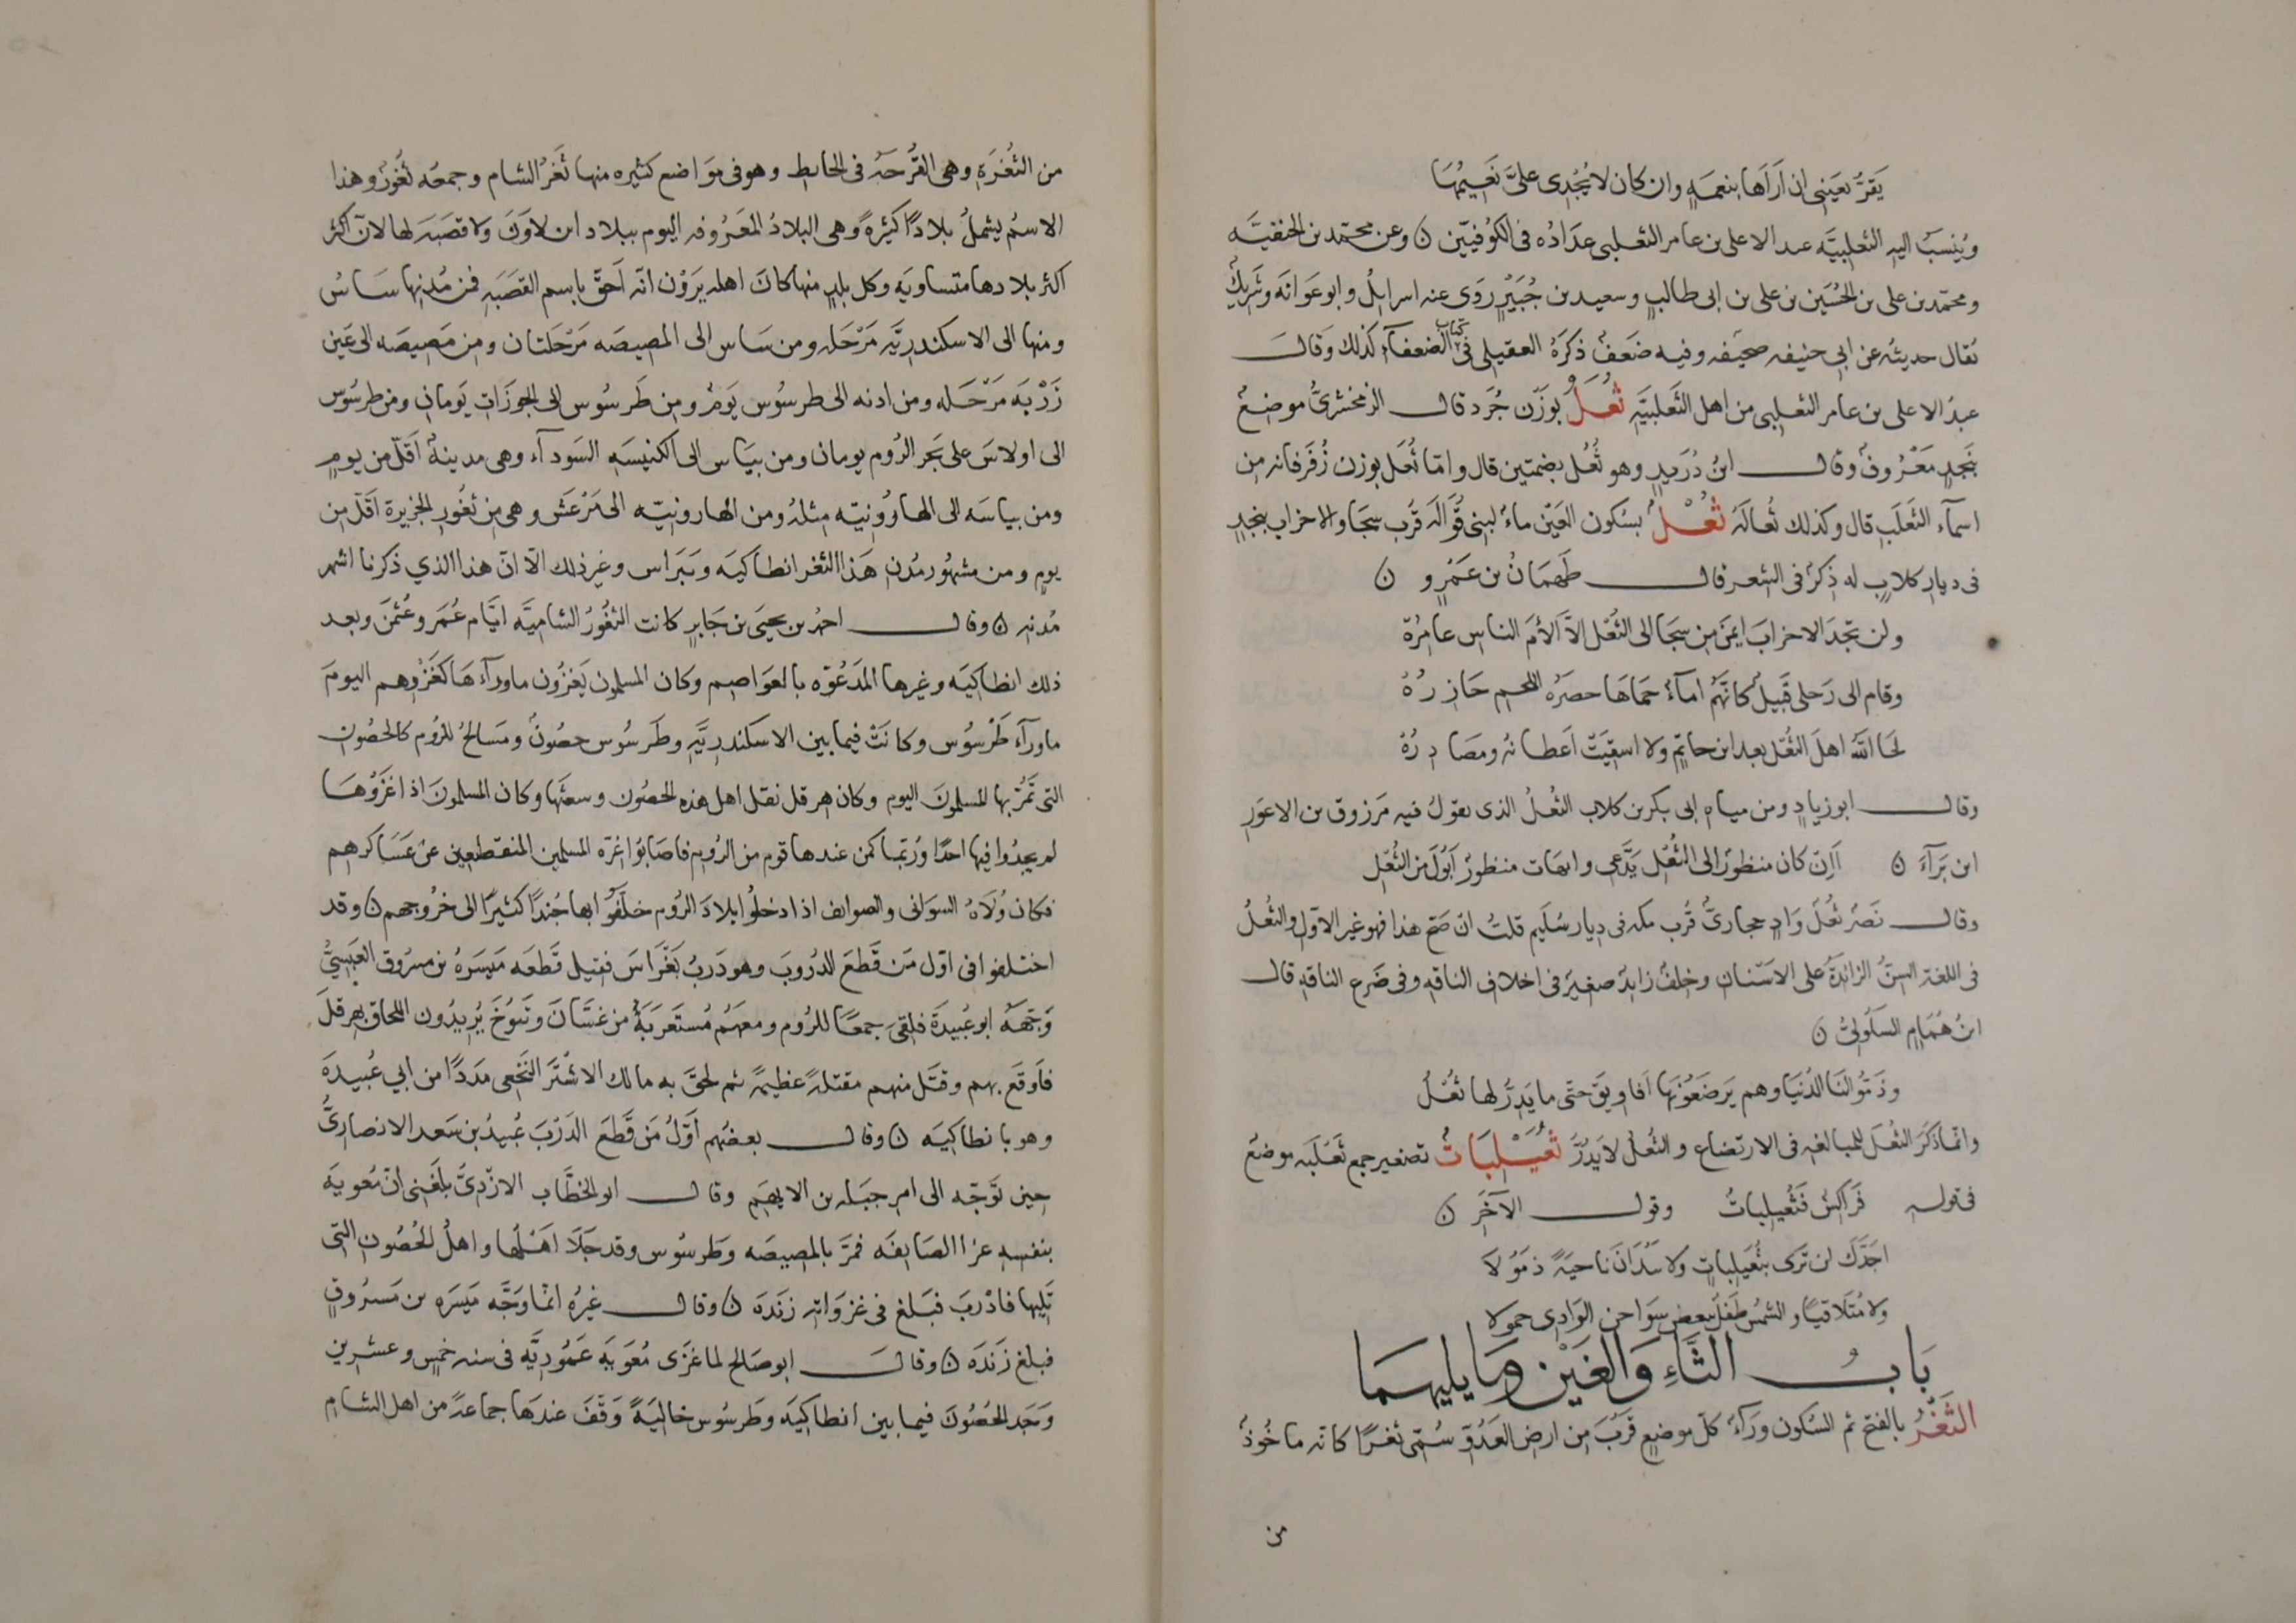 يَقَرُّ بعَينى ان اَراها بنعمةٍ وان كان لا يُجْدِى علىَّ نَعيمُها
ويُنسَبُ اليه الثعلبيَّه عبد الاعلى بن عامر الثعلبى عِدَادُه فى الكُوفيّين ن وعن محمّد بن الحنفيَّه
ومحمّد بن على بن الحُسَين بن على بن ابى طالبٍ وسعيد بن جُبَيْرٍ رَوَى عنه اسرايلُ وابو عَوَانَه وشَريكٌ
يقال حديثه عن ابى حنيفه صحيَفه وفيه ضَعَفٌ ذكَرَهُ العقيلى فى كتاب الضعفآء كذلك وقال
عبدُ الاعلى بن عامر الثعلبى من اهل الثَّعلبيَّه ثُعَلٌ بوَزْن جُرَد قال الزمخشرىُّ موضعٌ
بنَجدٍ مَعْرُوفٌ وقال ابنُ دُرَيدٍ وهو ثُعُل بضمتين قال وامّا ثُعَل بوزن زُفَر فانه من
اسمآء الثَعلَبِ قال وكذلك ثُعالَهُ ثُعْلٌ بسُكون العَيْن ماءٌ لبنى قُوَّالَه قُربَ سجَا والاخراب بنجدٍ
فى ديار كلابٍ له ذِكرٌ فى الشعر قال طَهمَانُ بن عَمْرٍو ن
ولن تجدَ الاخرابَ ايمَنَ مِن سجَا الى الثُعْل الاَّ ألأمَ الناس عامِرُهْ
وقام الى رَحلى قَبيلٌ كانَّهُم امآءٌ حَمَاهَا حصَرَه اللحم حَازِرُهْ
لحَا اللهُ اهلَ الثُعْل بعد ابن حاتمٍ ولا اسقيَتْ اَعطانه ومصَادِرُهْ
وقال ابو زيادٍ ومن مياه ابى بكر بن كلاب الثُعْلُ الذى يقولُ فيه مَرزوق بن الاعوَرِ
ابن بَرَآءَ ن اَاِن كان منظورٌ الى الثُّعْل يَدَّعى وايهات منظورٌ اَبُوكَ من الثُعْل
وقال نَصرٌ ثُعْلٌ وَادٍ حجازىٌّ قُرب مكه فى ديار سُلَيم قلتُ ان صَحّ هذا فهو غير الاوّل والثُعْلُ
فى اللغة السِنُّ الزائدةُ على الاَسْنانِ وخِلفٌ زايدٌ صغيرٌ فى اخلاف الناقه وفى ضَرع الناقه قال
ابنُ هُمَامٍ السَلُولىُّ ن
وذَمُّوا لنَا الدُنيَا وهم يَرضَعُونَها اَفاوِيقَ حتّى ما يَدِرُّ لها ثُعْلُ
وانما ذَكَرَ الثُعْلَ للمبالغه فى الارتضاع والثُعْلُ لا يَدُرّ ثُعَيْلِبَاتٌ تصغير جمع ثَعْلَبَه موضعٌ
فى قوله فَراكِسٌ فَثُعَيلِباتٌ وقول الآخَرِ ن
اجَدَّكَ لن تَرَى بثُعَيلِباتٍ ولا بَيْدَانَ ناجيَةً ذَمُولا
ولا مُتَلاقيًا والشمس طَفلٌ ببعض نوَاحى الوَادِى حمولا
بَابُ الثَّاءِ وَالغَيْن وما يليهمَا
الثَغْرُ بالفتح ثم السُكون ورَآءٌ كلّ موضعٍ قَرُبَ مِن ارض العَدُوّ سُمّى ثغرًا كانّه ماخُوذٌ
من
من الثُغْرَةِ وهى الفُرْجَةُ فى الحايط وهو فى مَوَاضع كثيره منها ثَغرُ الشام وجمعُه ثُغُورٌ وهذا
الاسمُ يشملُ بلادًا كثيرةً وهى البلادُ المَعْرُوفه اليوم ببلاد ابن لاوَن ولا قصَبَه لها لانّ اكثر
اكثر بلادها متساويَه وكل بلدٍ منها كان اهله يَرَوْن انّه اَحَقّ باسم القصَبَه فمن مُدنِها بيَاسُ
ومنها الى الاسكندريَّه مَرْحَله ومن بيَاس الى المصيصَه مَرْحَلتان ومن مَصِيصَه الى عَين
زَرْبَه مَرْحَله ومن ادنه الى طرسُوس يَومٌ ومن طَرسُوس الى الجوزَاتِ يَومان ومن طرسُوس
الى اولاسَ على بَحر الرُوم يومان ومن بيَاس الى الكنيسَه السَودآء وهى مدينةٌ اقَلّ من يومٍ
ومن بياسَه الى الهارُونيّه مِثلهُ ومن الهارونيّه الى مَرْعَش وهى من ثُغُور الجزيرة اقَلّ من
يومٍ ومن مشهُور مُدنِ هَذا الثغر انطاكيَه وبَغرَاس وغير ذلك الاّ انّ هذا الذى ذكرنا اشهر
مُدنه ن وقال احمدُ بن يحيَى بن جَابرٍ كانت الثغُورُ الشاميَّه ايّام عُمَر وعُثمن وبعد
ذلك انطاكيَه وغيرها المَدعُوّه بالعوَاصِم وكان المسلمون يَغزُون ما ورآءَهَا كغَزْوِهم اليَومَ
ما ورآءَ طَرْسُوس وكانَتْ فيما بين الاسكندريَّه وطَرسُوس حصُونٌ ومَسَالحُ للرُوم كالحصُون
التى تَمُرّ بها المسلمون اليوم وكان هرقل نقَل اهل هذه الحصُون وسعثَها وكان المسلمونَ اذا غَزَوْهَا
لم يجدُوا فيها احدًا ورُبّما كمن عندها قوم من الرُوم فاصَابُوا غرّه المسلمين المنقطعين عن عَسَاكرهم
فكان وُلاةُ السواتى والصوايف اذا دخلُوا بلادَ الرُوم خلّفُوا بها جُندًا كثيرًا الى خرُوجهم ن وقد
اختلفوا فى اوّل مَن قَطَعَ الدُروبَ وهو دَربُ بَغْرَاسَ فقيل قَطعَه مَيسَرَهُ بن مسرُوق العَبسِىُّ
وَجّهَهُ ابو عُبَيدَةَ فلقىَ جمعًا للرُوم ومعهُم مُستَعرَبَةٌ من غسَّان وتَنُوخَ يُرِيدُون اللحاق بهرقلَ
فاَوقَع بهم وقتَل منهم مقتلةً عظيمةً ثم لحقَ به مالك الاشْتَرُ النَخَعى مَدَدًا من ابى عُبيدة
وهو بانطاكيَه ن وقال بعضهم اَوّلُ مَن قَطَعَ الدَرْبَ عُمَيدُ بن سَعد الانصارىُّ
حين تَوَجّه الى امر جبَله بن الايهَم وقال ابو الخطَّاب الازْدِىُّ بلَغَنى انّ مُعوية
بنفسه غزا الصَايفَه فمَرّ بالمصيصَه وطَرسُوس وقد جَلاَ اَهْلُها واهلُ الحُصُون التى
تَلِيها فادْرَبَ فبَلغ فى غزوَاته زندَه ن وقال غيرُه انمَا وَجَّه مَيسَره بن مَسرُوقٍ
فبلغ زَندَه ن وقال ابو صَالح لما غزَى مُعَويَه عَمُّوريَّه فى سنه خمسٍ وعشرين
وَجَد الحُصُونَ فيما بين انطاكيَه وطَرسُوس خاليَةً وَقَفَ عندَها جماعةً من اهل الشام